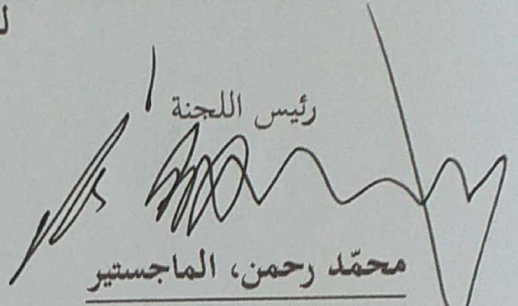 رئيس اللجنة
محمّد رحمن، الماجستير